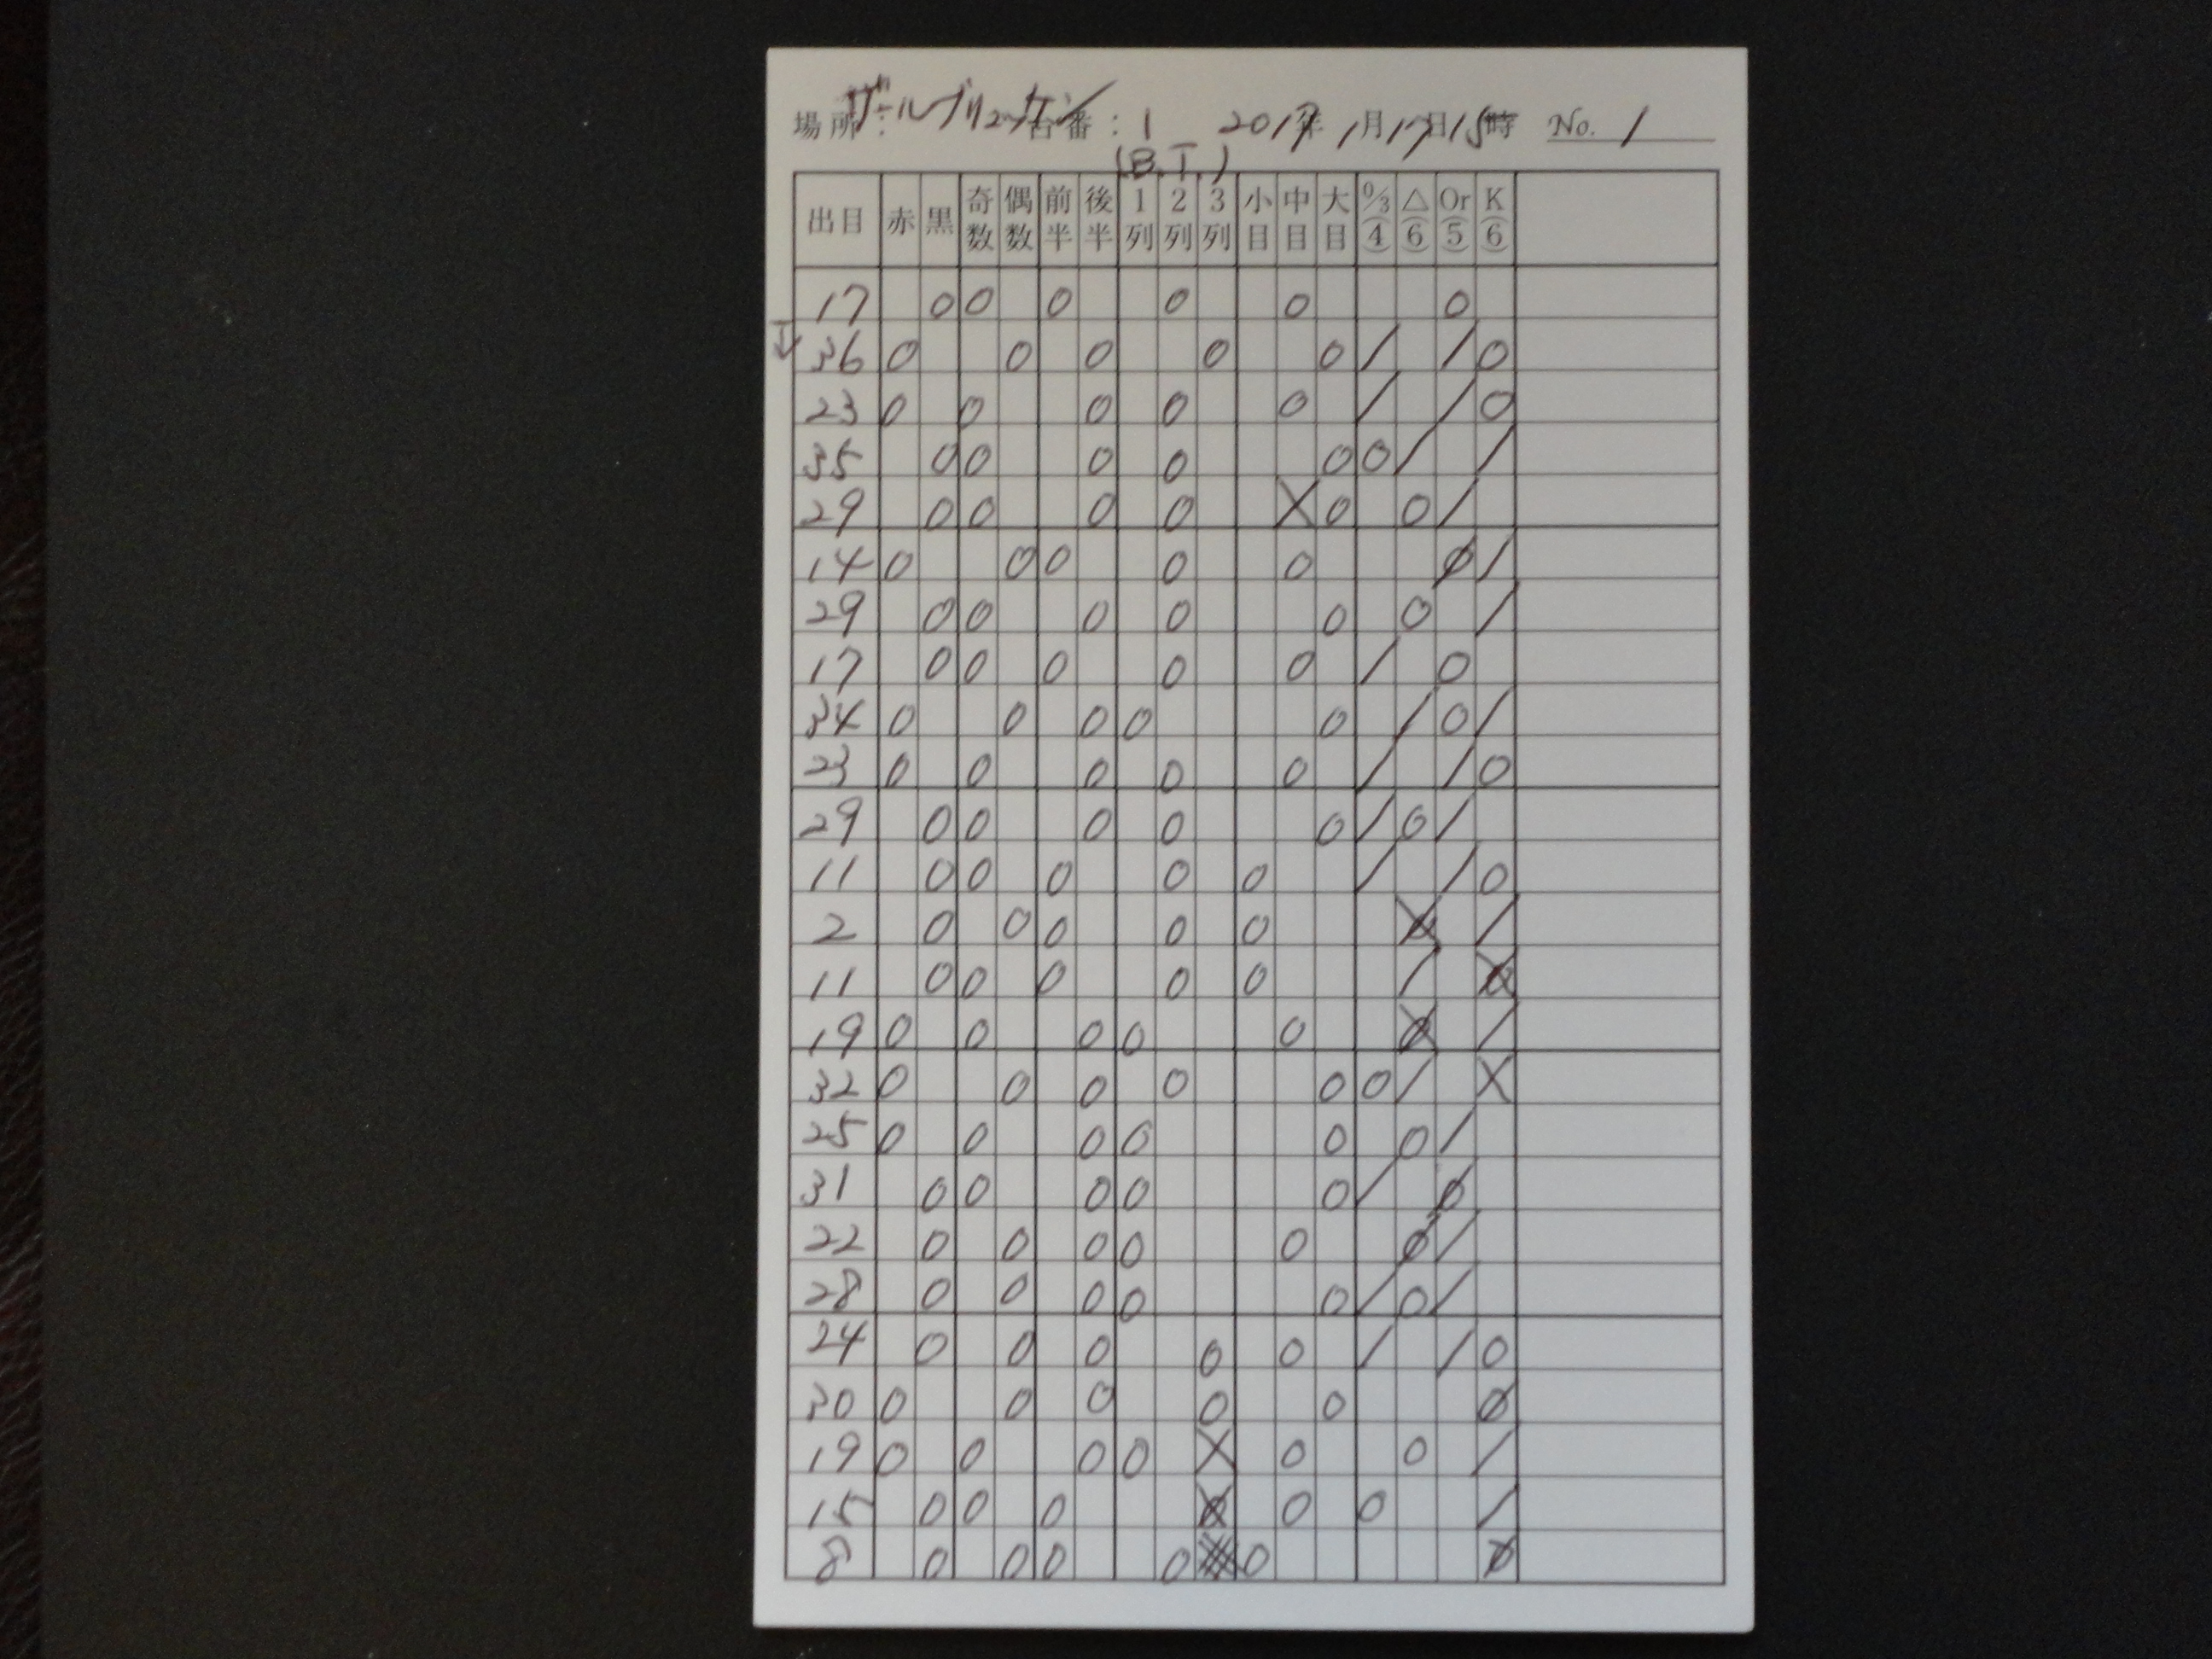 場所: ザールブリュッケン 台番: 1 2017年 1月17日15時 No. 1
(B.T.)
出目 赤 黒 奇数 偶数 前半 後半 1列 2列 3列 小目 中目 大目 0/3(4) △(6) Or(5) K(6)
17 0 0 0 0 0 0
36 0 0 0 0 0 / / 0
23 0 0 0 0 0 / / 0
35 0 0 0 0 0 0 / /
29 0 0 0 0 X 0 0 /
14 0 0 0 0 0 Ø /
29 0 0 0 0 0 0 /
17 0 0 0 0 0 / 0
34 0 0 0 0 0 / 0 /
23 0 0 0 0 0 / / 0
29 0 0 0 0 0 / 0 /
11 0 0 0 0 0 / / 0
2 0 0 0 0 0 /
11 0 0 0 0 0 /
19 0 0 0 0 0 /
32 0 0 0 0 0 0 / X
25 0 0 0 0 0 0 /
31 0 0 0 0 0 / Ø
22 0 0 0 0 0 Ø /
28 0 0 0 0 0 / 0 /
24 0 0 0 0 0 / / 0
30 0 0 0 0 0 Ø
19 0 0 0 0 X 0 0 /
15 0 0 0 0 0 /
8 0 0 0 0 0